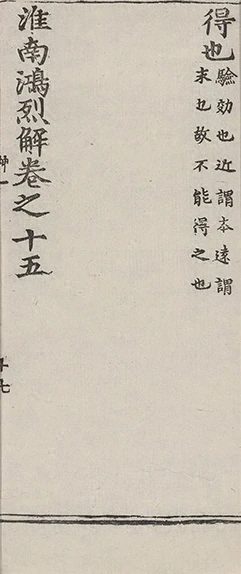 得也
驗効也近謂本遠謂
求也故不能得之也
淮南鴻烈解卷之十五
十七